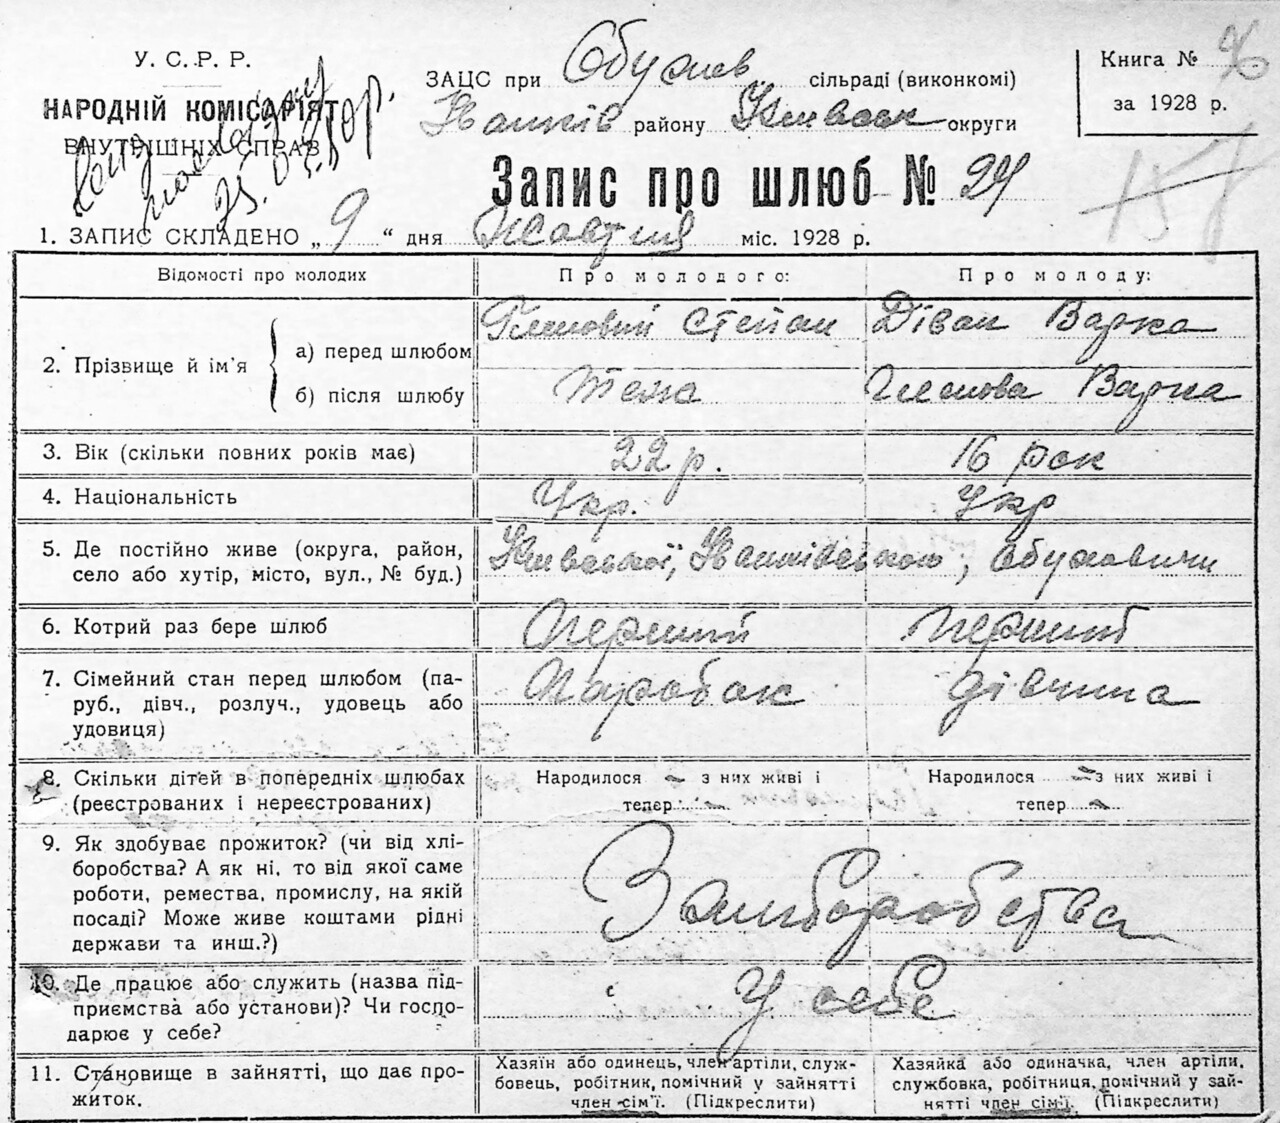 У. С. Р. Р.
НАРОДНІЙ КОМІСАРІЯТ
ВНУТРІШНІХ СПРАВ
25.
ЗАЦС при Обухов. сільраді (виконкомі)
Іванків району Київськ округи
Книга № 76
за 1928 р.
Запис про шлюб № 24
157
1. ЗАПИС СКЛАДЕНО „ 9 “ дня Жовтня міс. 1928 р.
Відомості про молодих
Про молодого:
Про молоду:
2. Прізвище й ім'я
а) перед шлюбом
Степан
Діван Варка
б) після шлюбу
Тежа
Варка
3. Вік (скільки повних років має)
22 р.
16 рок
4. Національність
Укр.
Укр
5. Де постійно живе (округа, район,
село або хутір, місто, вул., № буд.)
Київської, Іванківською, Обуховичи
6. Котрий раз бере шлюб
Перший
Перший
7. Сімейний стан перед шлюбом (па-
руб., дівч., розлуч., удовець або
удовиця)
Паробак
дівчина
8. Скільки дітей в попередніх шлюбах
(реєстрованих і нереєстрованих)
Народилося – з них живі і
тепер –
Народилося – з них живі і
тепер –
9. Як здобуває прожиток? (чи від хлі-
боробства? А як ні, то від якої саме
роботи, ремества, промислу, на якій
посаді? Може живе коштами рідні
держави та инш.?)
З хліборобства
10. Де працює або служить (назва під-
приємства або установи)? Чи госпо-
дарює у себе?
У себе
11. Становище в зайнятті, що дає про-
житок.
Хазяїн або одинець, член артіли, служ-
бовець, робітник, помічний у зайнятті
член сім'ї. (Підкреслити)
Хазяйка або одиначка, член артіли,
службовка, робітниця, помічний у зай-
нятті член сім'ї. (Підкреслити)